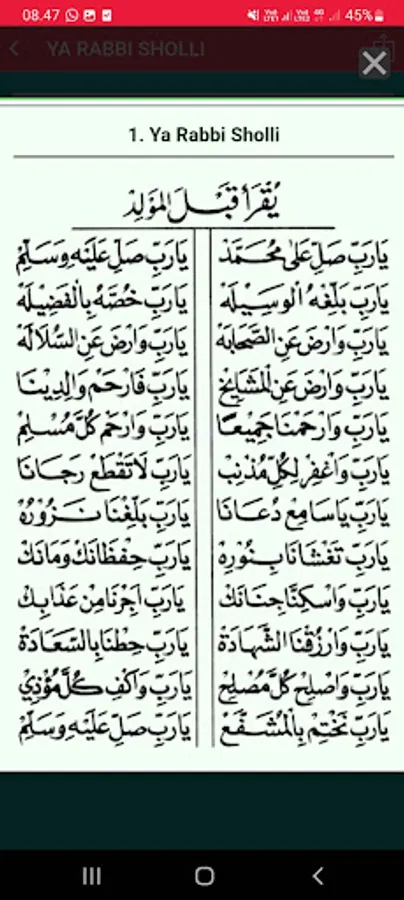 08.47 45%
YA RABBI SHOLLI
1. Ya Rabbi Sholli
يُقْرَأُ قَبْلَ الْمَوْلِدِ
يَارَبِّ صَلِّ عَلَى مُحَمَّدْ يَارَبِّ صَلِّ عَلَيْهِ وَسَلِّمْ
يَارَبِّ بَلِّغْهُ الْوَسِيلَهْ يَارَبِّ خُصَّهُ بِالْفَضِيلَهْ
يَارَبِّ وَارْضَ عَنِ الصَّحَابَهْ يَارَبِّ وَارْضَ عَنِ السُّلَالَهْ
يَارَبِّ وَارْضَ عَنِ الْمَشَايِخْ يَارَبِّ فَارْحَمْ وَالِدِينَا
يَارَبِّ وَارْحَمْنَا جَمِيعًا يَارَبِّ وَارْحَمْ كُلَّ مُسْلِمْ
يَارَبِّ وَاغْفِرْ لِكُلِّ مُذْنِبْ يَارَبِّ لَاتَقْطَعْ رَجَانَا
يَارَبِّ يَاسَامِعْ دُعَانَا يَارَبِّ بَلِّغْنَا نَزُورُهْ
يَارَبِّ تَغْشَانَا بِنُورِهْ يَارَبِّ حِفْظَانَكْ وَمَانَكْ
يَارَبِّ وَاسْكِنَّا جِنَانَكْ يَارَبِّ اَجِرْنَا مِنْ عَذَابِكْ
يَارَبِّ وَارْزُقْنَا الشَّهَادَةْ يَارَبِّ حِطْنَا بِالسَّعَادَةْ
يَارَبِّ وَاصْلِحْ كُلَّ مُصْلِحْ يَارَبِّ وَاكْفِ كُلَّ مُؤْذِيْ
يَارَبِّ نَخْتِمْ بِالْمُشَفَّعْ يَارَبِّ صَلِّ عَلَيْهِ وَسَلِّمْ